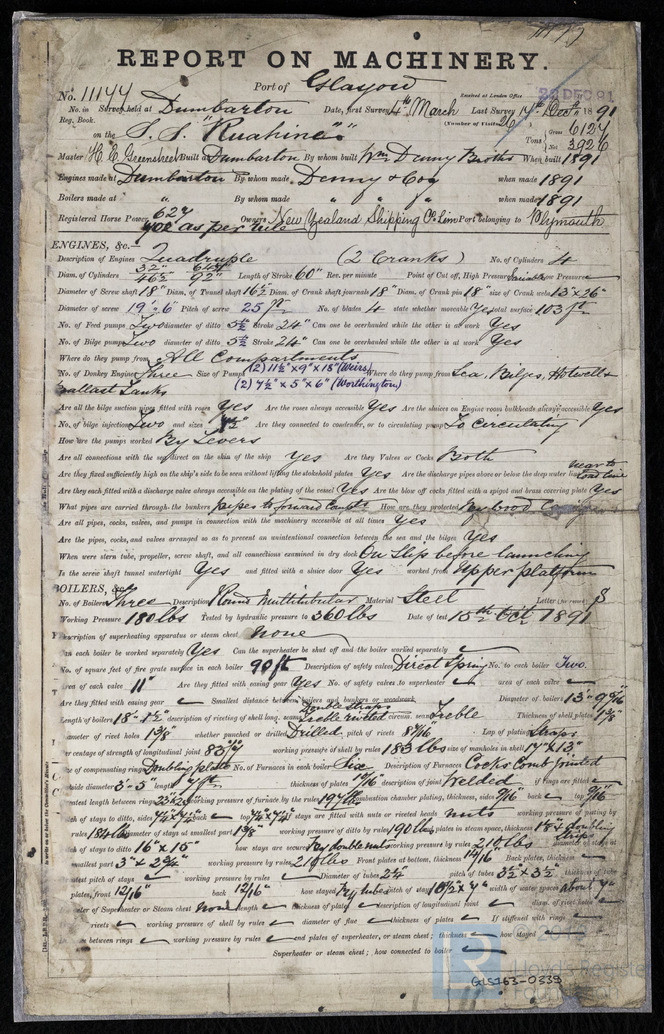 REPORT ON MACHINERY.
Port of Glasgow
Received at London Office 22 DEC 91
No. 11144
No. in Survey held at Dumbarton Date, first Survey 4th March Last Survey 14th Decr 1891
Reg. Book. (Number of Visits 26)
on the S.S. "Ruahine" Tons Gross 6127 Net 3926
Master H. E. Greenstreet Built at Dumbarton By whom built Wm Denny & Bros When built 1891
Engines made at Dumbarton By whom made Denny & Co when made 1891
Boilers made at " By whom made " " " when made 1891
Registered Horse Power 627 Owners New Zealand Shipping Co Lim Port belonging to Plymouth
402 as per rule
ENGINES, &c.—
Description of Engines Quadruple (2 Cranks) No. of Cylinders 4
Diam. of Cylinders 46½ 92" Length of Stroke 60" Rev. per minute Point of Cut off, High Pressure Variable Low Pressure
Diameter of Screw shaft 18" Diam. of Tunnel shaft 16½ Diam. of Crank shaft journals 18" Diam. of Crank pin 18" size of Crank webs 13"x26"
Diameter of screw 19'.6" Pitch of screw 25 ft No. of blades 4 state whether moveable Yes total surface 103 ft
No. of Feed pumps Two diameter of ditto 5½ Stroke 24" Can one be overhauled while the other is at work Yes
No. of Bilge pumps Two diameter of ditto 5½ Stroke 24" Can one be overhauled while the other is at work Yes
Where do they pump from All Compartments
No. of Donkey Engines Three Size of Pumps (2) 11½" x 9" x 18" (Weirs) Where do they pump from Sea, Bilges, Hotwell &
Ballast Tanks (2) 7½" x 5" x 6" (Worthington)
Are all the bilge suction pipes fitted with roses Yes Are the roses always accessible Yes Are the sluices on Engine room bulkheads always accessible Yes
No. of bilge injections Two and sizes Are they connected to condenser, or to circulating pump To Circulating
How are the pumps worked By Levers
Are all connections with the sea direct on the skin of the ship Yes Are they Valves or Cocks Both
Are they fixed sufficiently high on the ship's side to be seen without lifting the stokehold plates Yes Are the discharge pipes above or below the deep water line near to load line
Are they each fitted with a discharge valve always accessible on the plating of the vessel Yes Are the blow off cocks fitted with a spigot and brass covering plate Yes
What pipes are carried through the bunkers pipes to forward How are they protected By wood
Are all pipes, cocks, valves, and pumps in connection with the machinery accessible at all times Yes
Are the pipes, cocks, and valves arranged so as to prevent an unintentional connection between the sea and the bilges Yes
When were stern tube, propeller, screw shaft, and all connections examined in dry dock On Slip before launching
Is the screw shaft tunnel watertight Yes and fitted with a sluice door Yes worked from Upper platform
BOILERS, &c.—
No. of Boilers Three Description Round Multitubular Material Steel Letter (for record) S
Working Pressure 180 lbs Tested by hydraulic pressure to 360 lbs Date of test 15th Oct 1891
Description of superheating apparatus or steam chest none
Can each boiler be worked separately Yes Can the superheater be shut off and the boiler worked separately
No. of square feet of fire grate surface in each boiler 90 ft Description of safety valves Direct Spring No. to each boiler Two.
area of each valve 11" Are they fitted with easing gear Yes No. of safety valves to superheater area of each valve
Are they fitted with easing gear Smallest distance between boilers and bunkers or woodwork Diameter of boilers 13'-9 9/16"
Length of boilers 18'-1½" description of riveting of shell long. seams Double straps Treble riveted circum. seams Treble Thickness of shell plates 1⅛"
diameter of rivet holes 1 3/8 whether punched or drilled Drilled pitch of rivets 8 7/16 Lap of plating Straps
per centage of strength of longitudinal joint working pressure of shell by rules 183 lbs size of manholes in shell 17"x13"
size of compensating rings Doubling plate No. of Furnaces in each boiler Six Description of Furnaces Cocks Comb Jointed
outside diameter 3'-5" length 7 ft thickness of plates description of joint Welded if rings are fitted
greatest length between rings working pressure of furnace by the rules combustion chamber plating, thickness, sides 9/16" back top 9/16"
pitch of stays to ditto, sides 7¼x7¼ back top 7¼x7¼ If stays are fitted with nuts or riveted heads nuts working pressure of plating by
rules 184 lbs diameter of stays at smallest part 1 3/8 working pressure of ditto by rules 190 lbs end plates in steam space, thickness & doubling strips
pitch of stays to ditto 16"x15" how stays are secured By double nuts working pressure by rules 210 lbs diameter of stays at
smallest part working pressure by rules 210 lbs Front plates at bottom, thickness Back plates, thickness
greatest pitch of stays working pressure by rules Diameter of tubes pitch of tubes 3½"x3½" thickness of tube
plates, front 12/16" back 12/16" how stayed By tubes pitch of stays width of water spaces about 7"
diameter of Superheater or Steam chest none length thickness of plates description of longitudinal joint diam. of rivet holes
pitch of rivets working pressure of shell by rules diameter of flue thickness of plates If stiffened with rings
distance between rings working pressure by rules end plates of superheater, or steam chest; thickness how stayed
Superheater or steam chest; how connected to boiler
GLS163-0339
LR Lloyd's Register Foundation